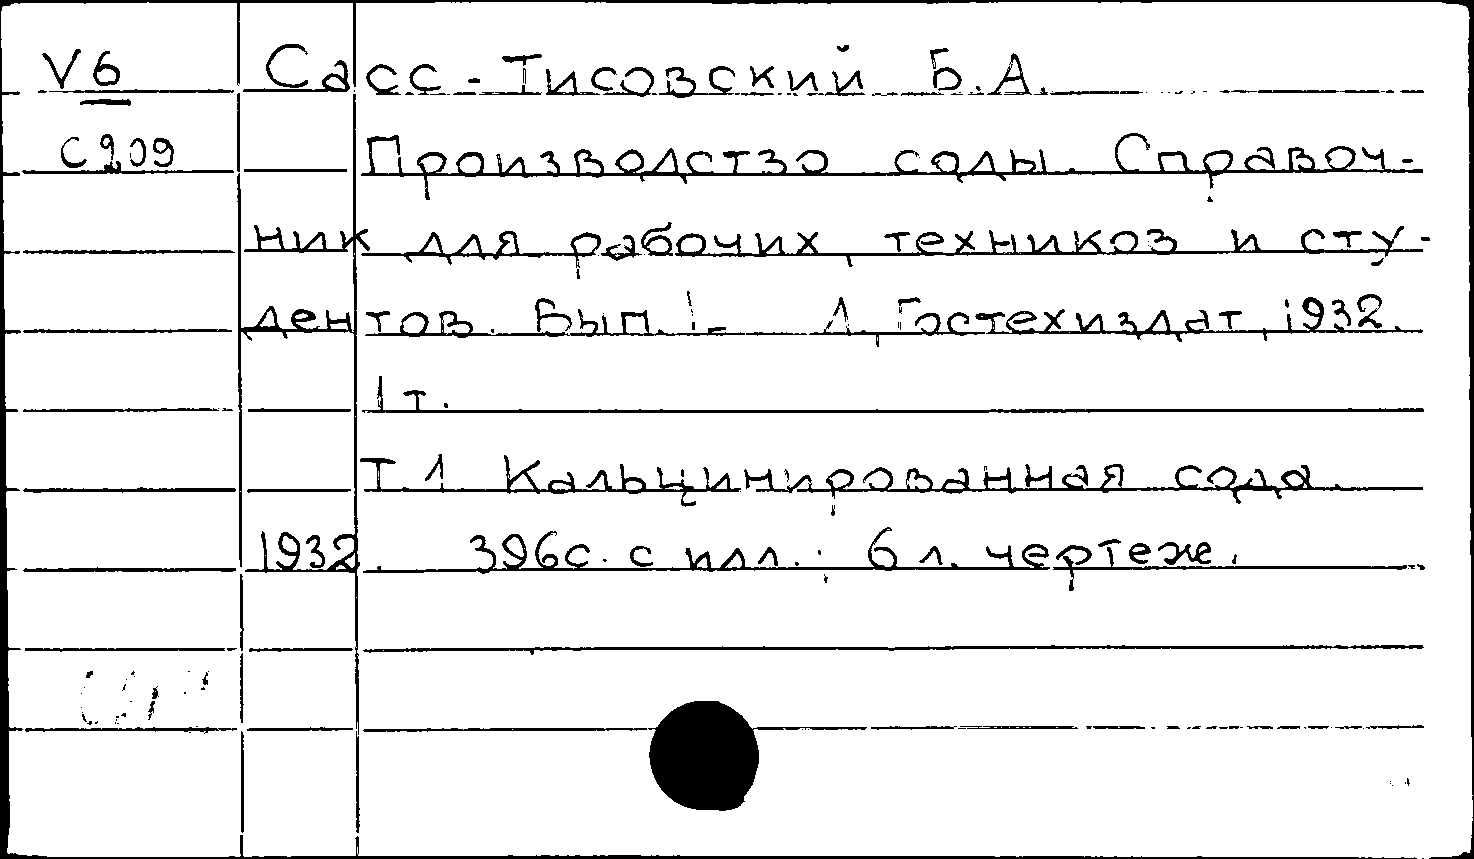 V6 Сасс-Тисовский Б.А.
С209 Производство соды. Справоч-
ник для рабочих, техников и сту-
дентов. Вып. 1- Л., Гостехиздат, 1932.
1 т.
Т.1 Кальцинированная сода.
1932. 396с. с илл.; 6 л. чертеж.